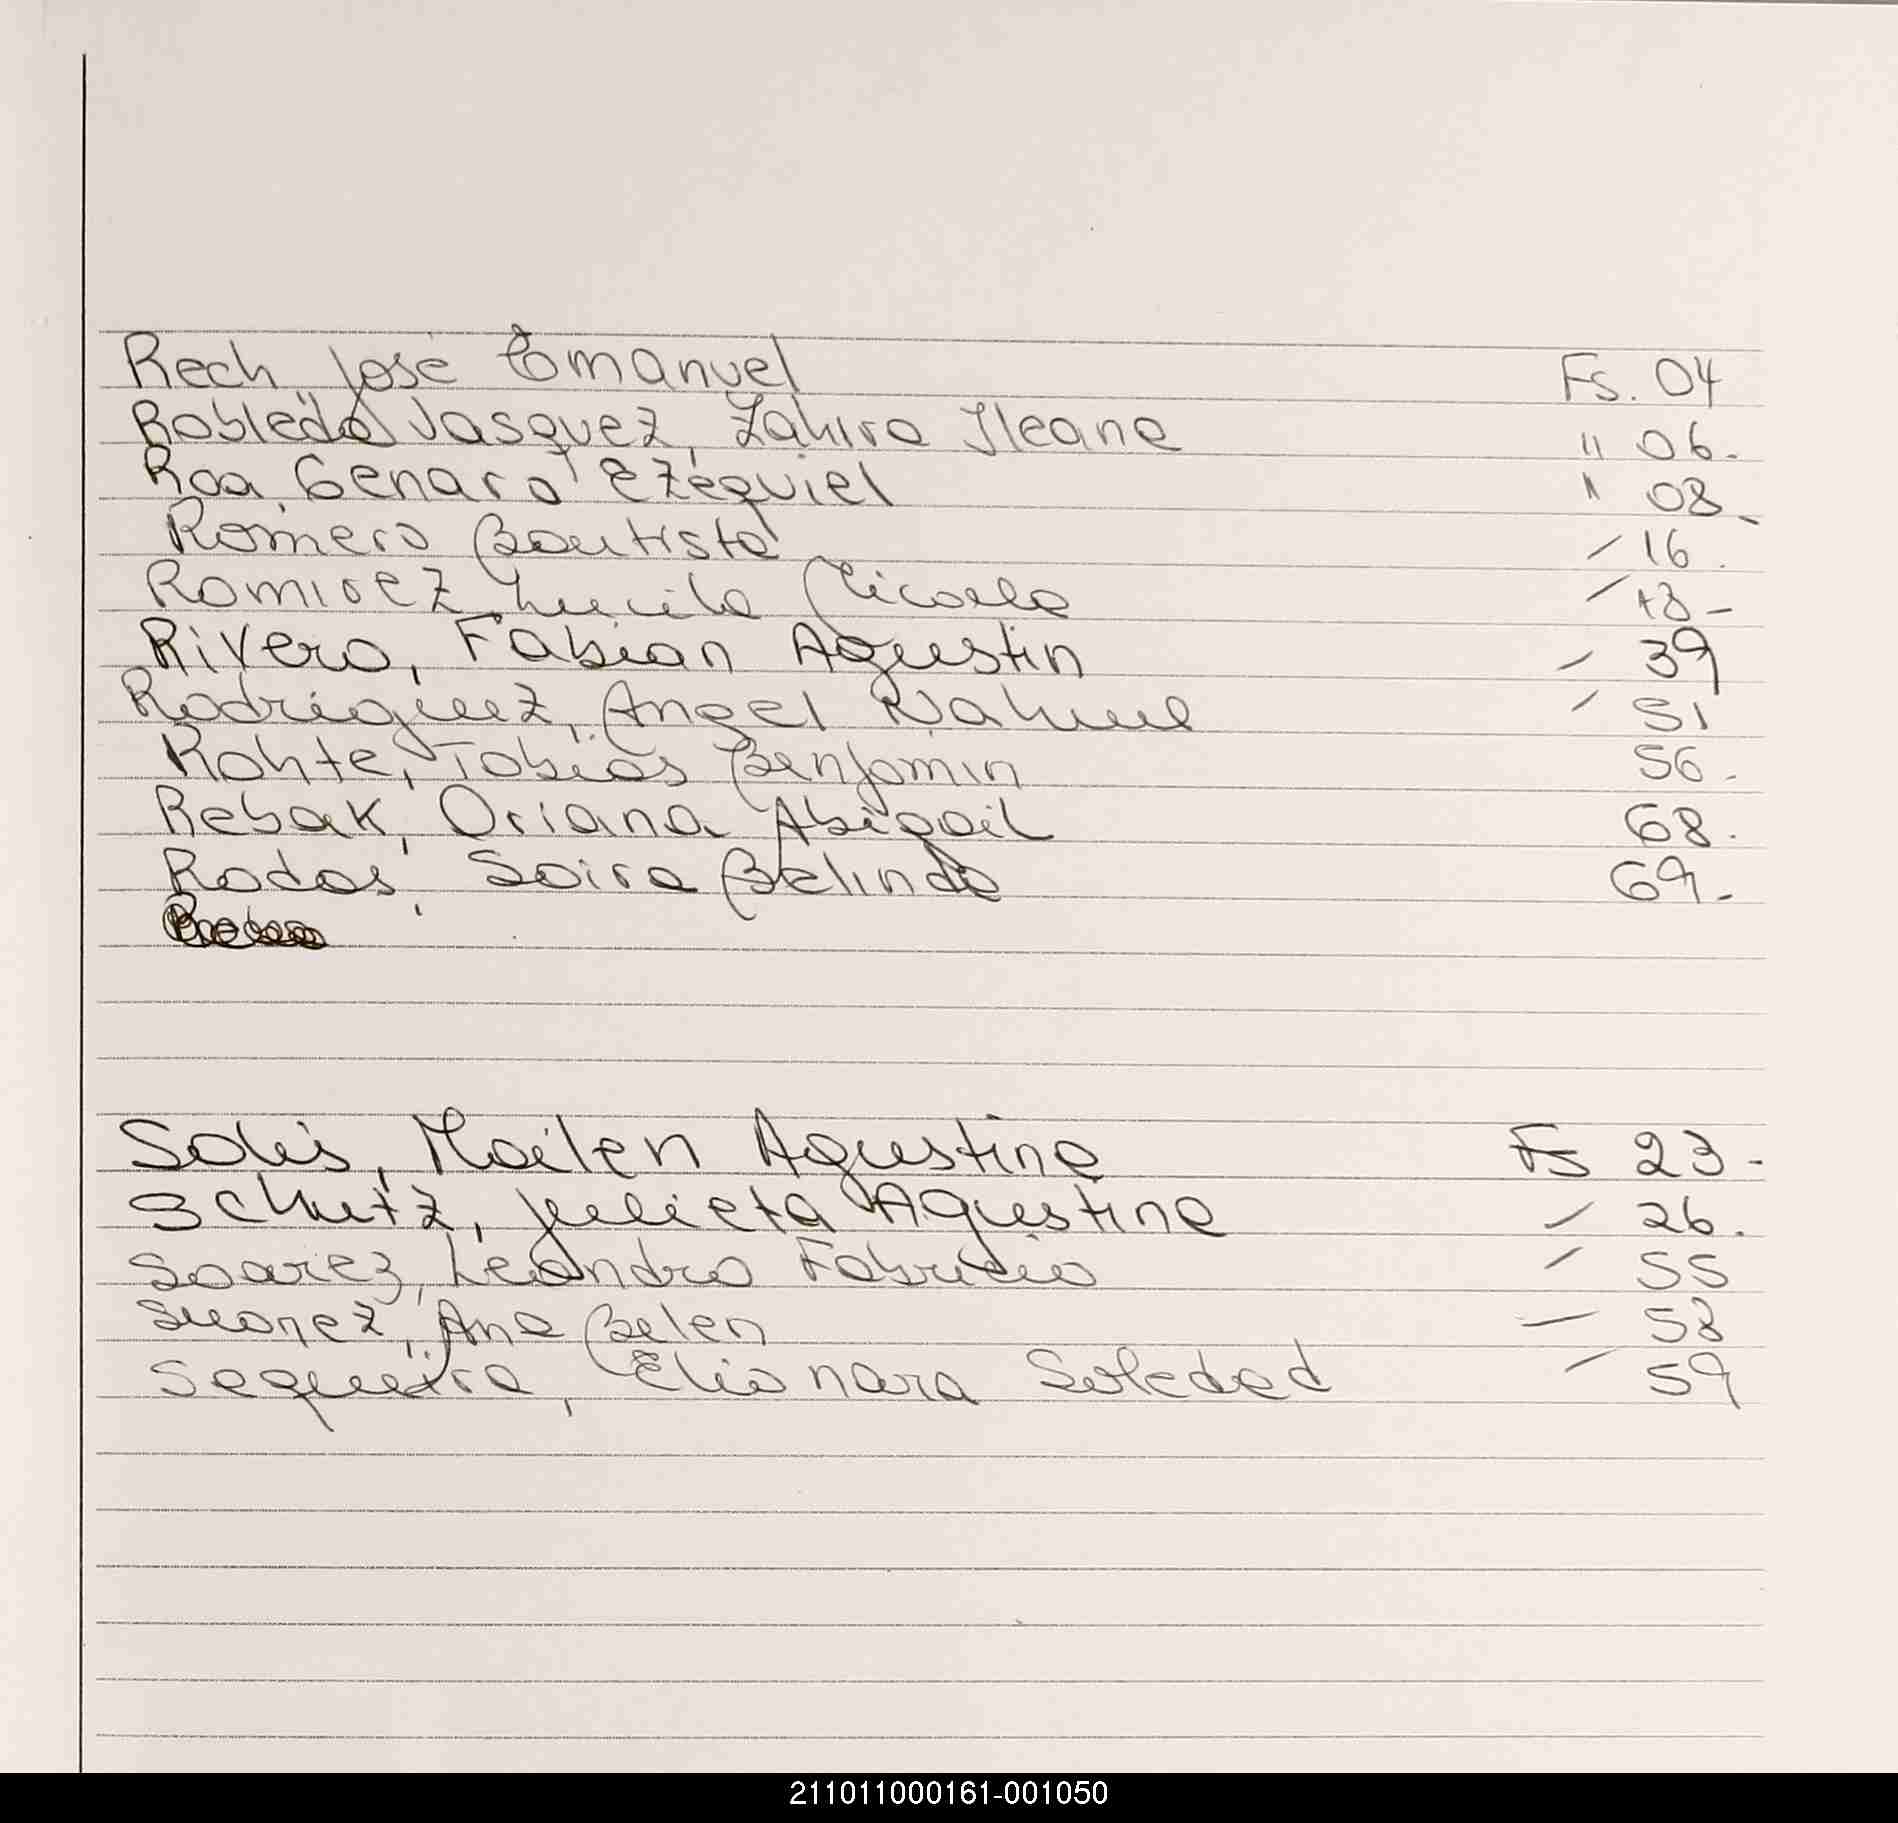 Rech, José Emanuel Fs. 04
Robledo Vasquez, Zahira Ileana " 06.
Roa, Genaro Ezequiel " 08.
Romero Bautista / 16.
Romirez, Lucila Nicolle / 18-
Rivero, Fabian Agustin / 39
Rodriguez, Angel Nahuel / 51
Rohte, Tobias Benjamin 56.
Rebak, Oriana Abigail 68.
Rodas, Soira Belinda 69.
Solis, Mailen Agustina Fs 23.
Schutz, Julieta Agustina / 26.
Soarez, Leandro Fabricio / 55
Suarez, Ana Belen — 58
Sequeira, Elionara Soledad / 59
211011000161-001050